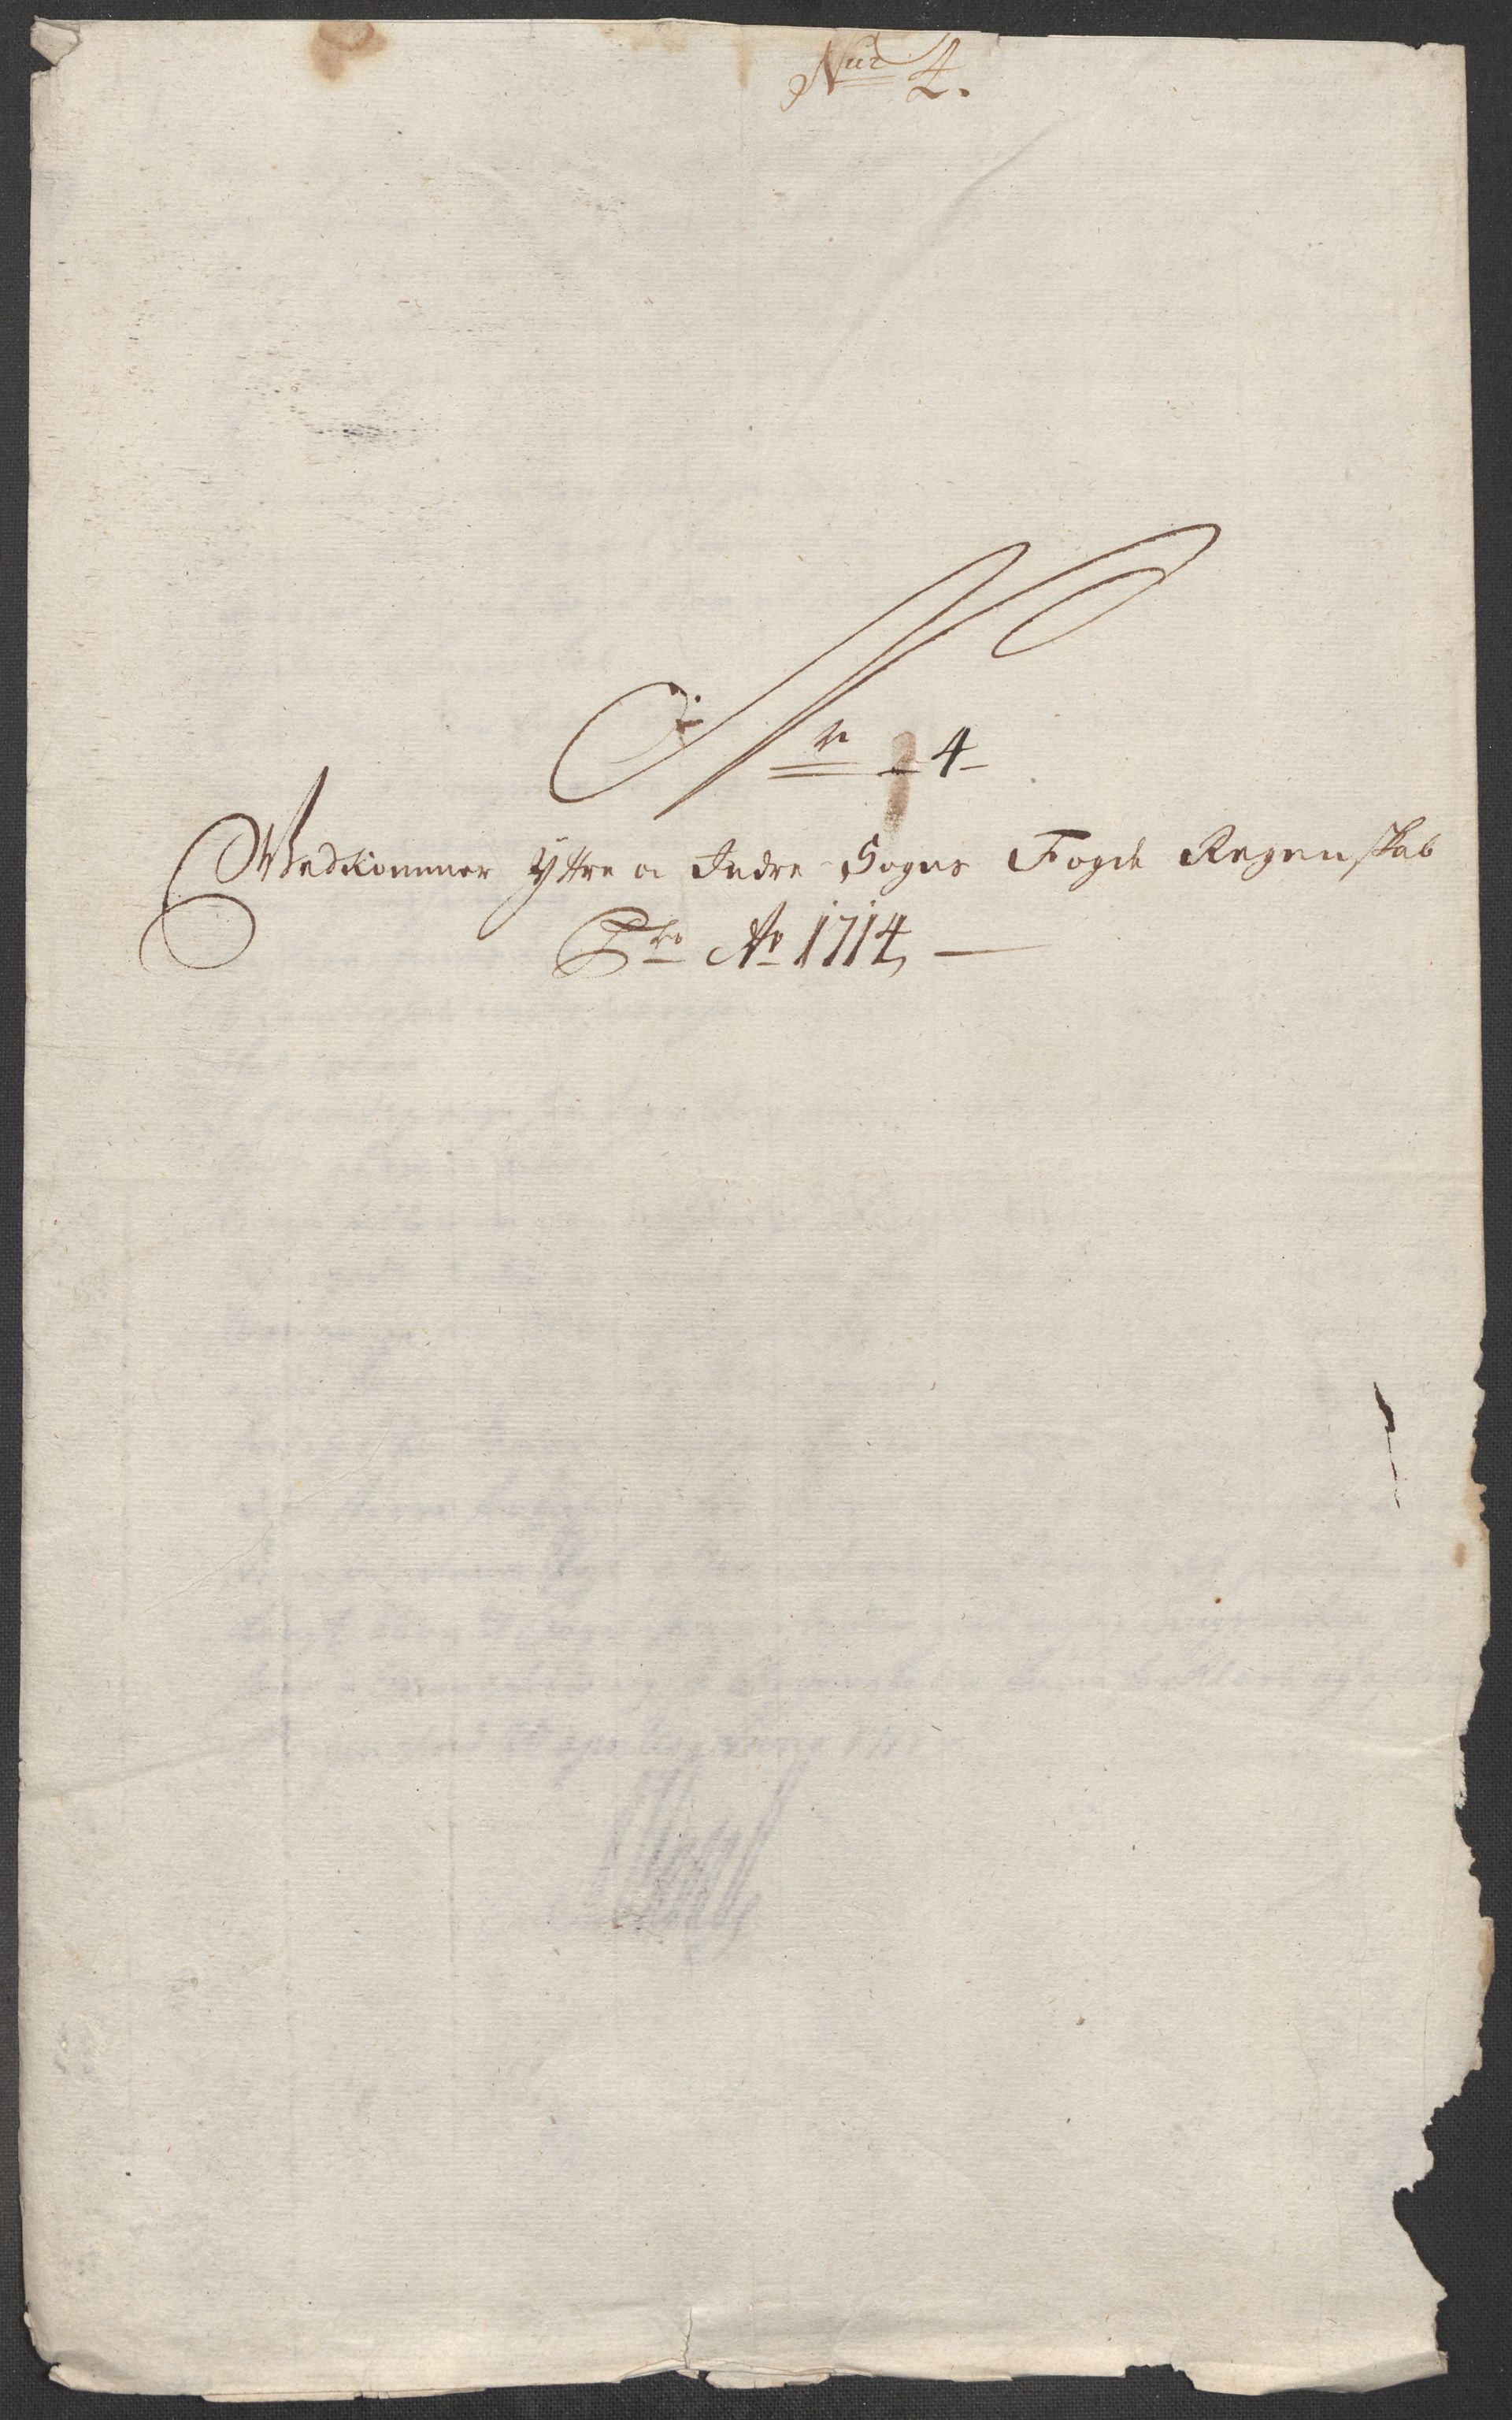 No 4.
Nr 4
Vedkommer Yttre og Indre Sogns Fogde Regenskab
Pro Ao 1714